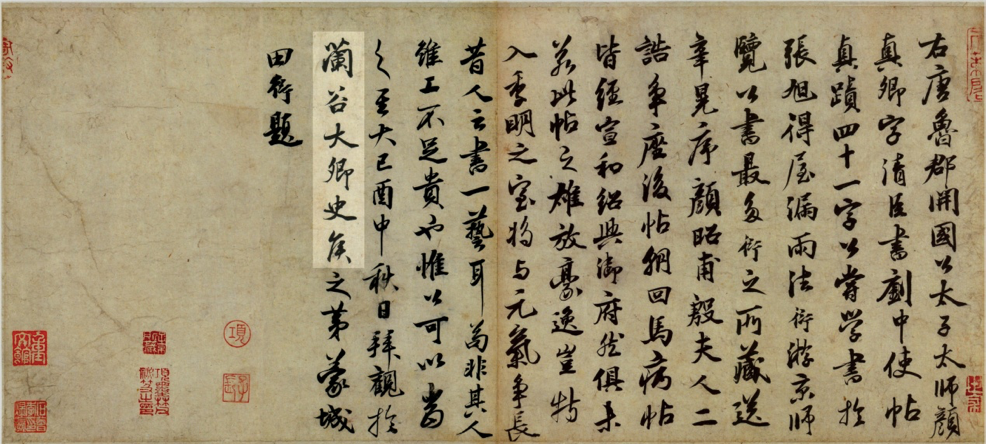 右唐魯郡開國公太子太師顏
真卿字清臣書劉中使帖
真蹟四十一字公嘗學書於
張旭得屋漏雨法衍游京師
覽公書最多衍之所藏送
辛晃序顏昭甫殷夫人二
誥爭座後帖朔回馬病帖
皆經宣和紹興御府然俱未
若此帖之雄放豪逸豈特
入季明之室將与元氣爭長
昔人云書一藝耳苟非其人
雖工不足貴也惟公可以當
之至大己酉中秋日拜觀於
蘭谷大卿史侯之第蒙城
田衍題